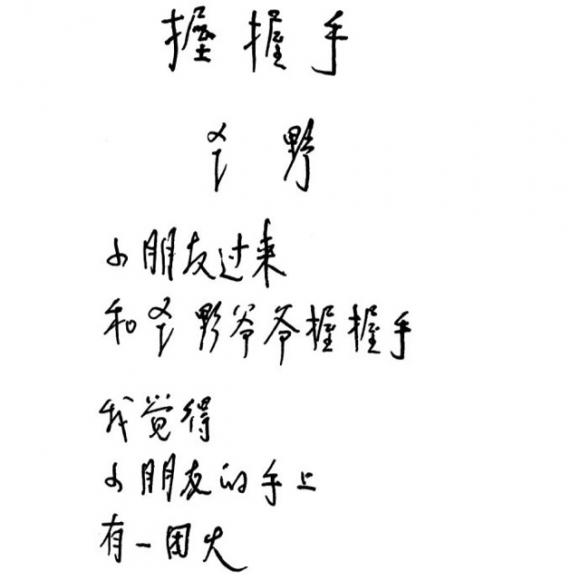 握握手
圣野
小朋友过来
和圣野爷爷握握手
我觉得
小朋友的手上
有一团火